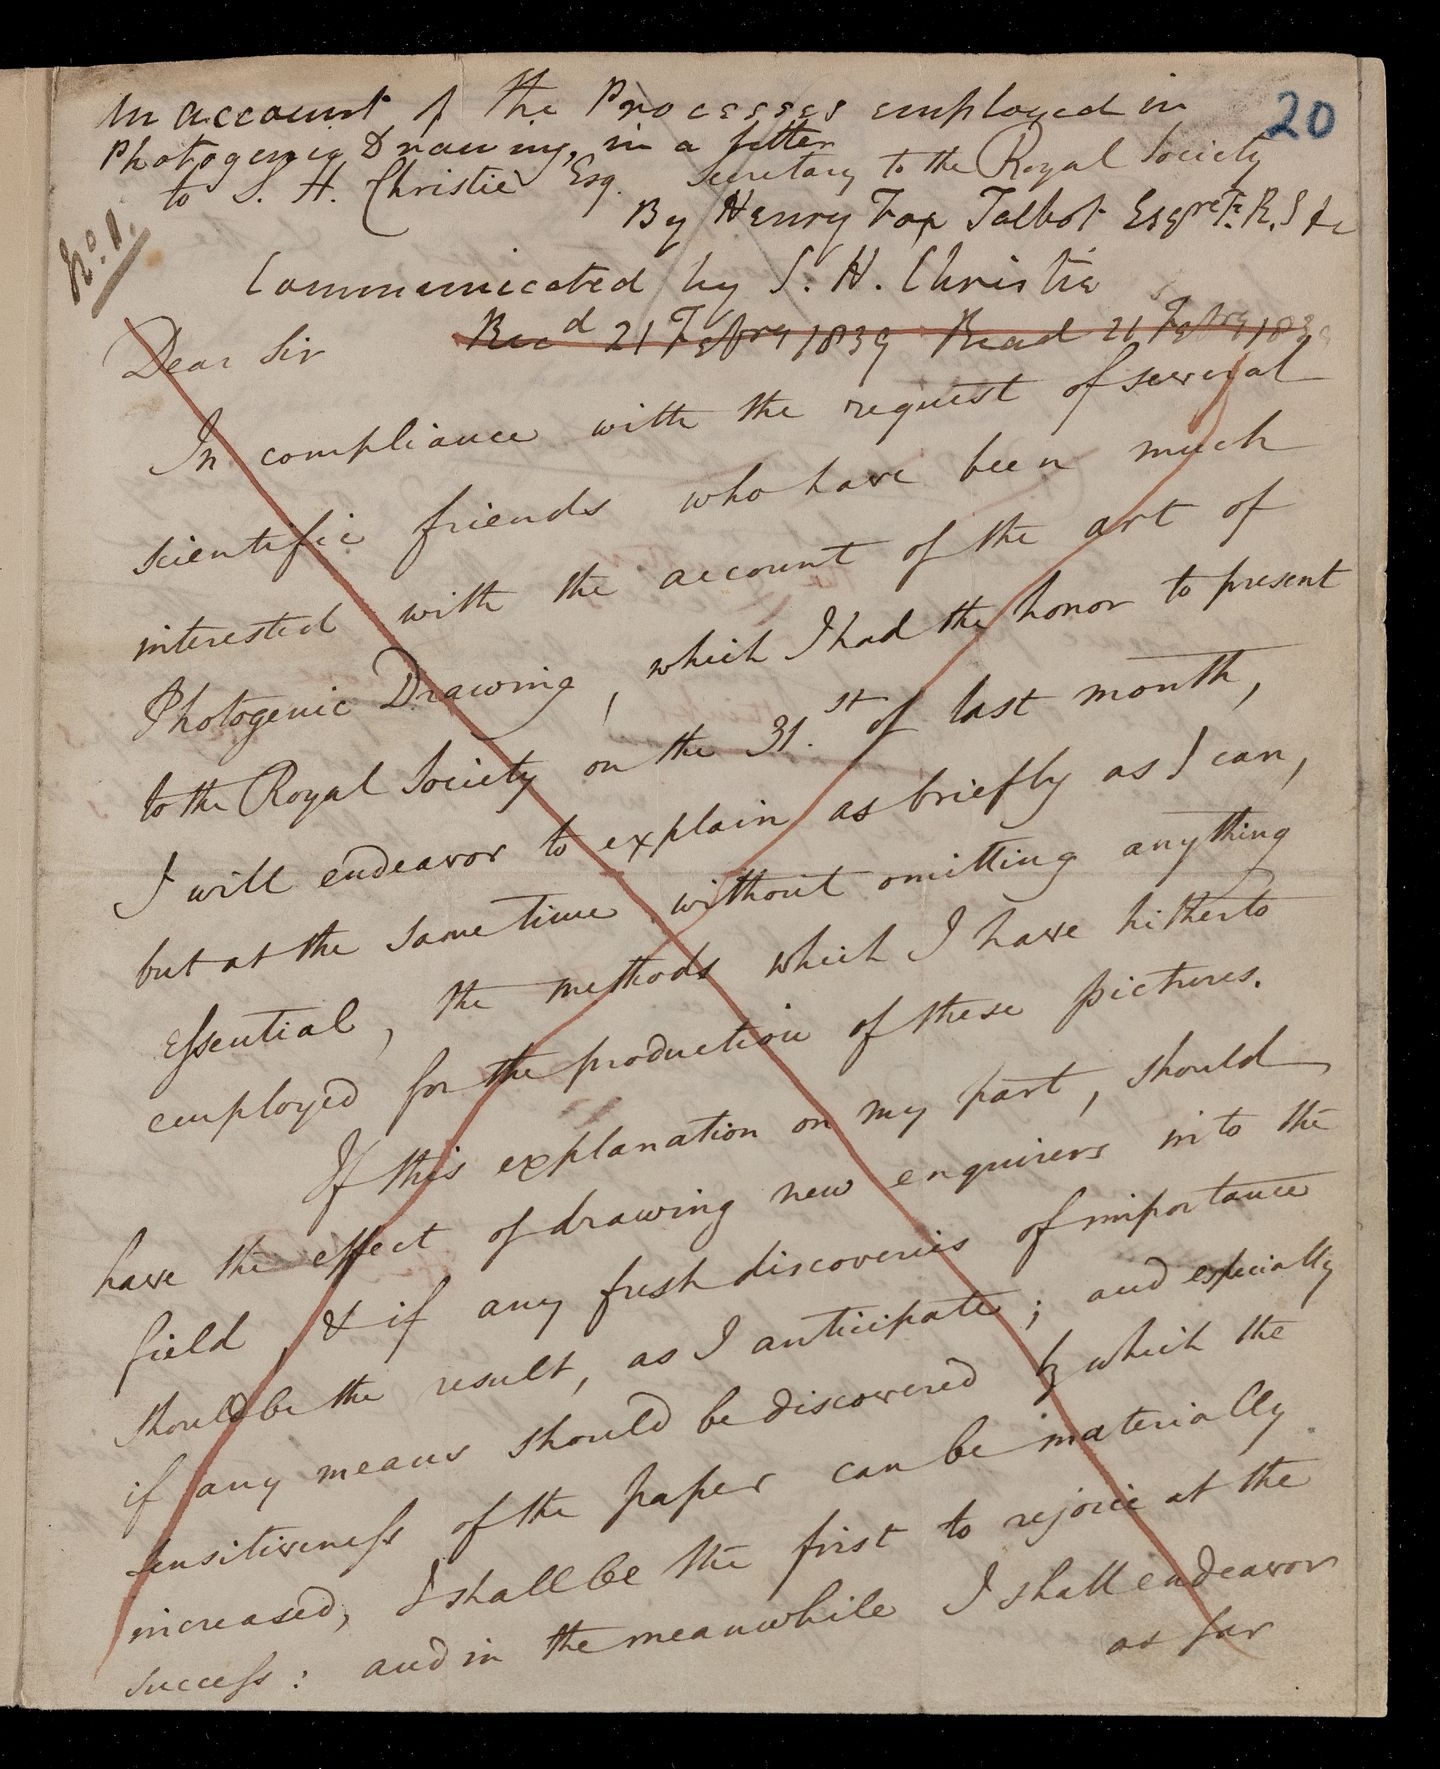 An account of the Processes employed in
20
Photogenic Drawing, in a letter
to S. H. Christie Esq. Secretary to the Royal Society
By Henry Fox Talbot Esqre F.R.S &c
No. 1.
Communicated by S. H. Christie
Recd 21 Febry 1839 Read 21 Febry 1839
Dear Sir
In compliance with the request of several
scientific friends who have been much
interested with the account of the art of
Photogenic Drawing, which I had the honor to present
to the Royal Society on the 31.st of last month,
I will endeavor to explain as briefly as I can,
but at the same time without omitting anything
essential, the methods which I have hitherto
employed for the production of these pictures.
If this explanation on my part, should
have the effect of drawing new enquirers into the
field, & if any fresh discoveries of importance
should be the result, as I anticipate; and especially
if any means should be discovered by which the
sensitiveness of the paper can be materially
increased, I shall be the first to rejoice at the
success: and in the meanwhile I shall endeavor
as far